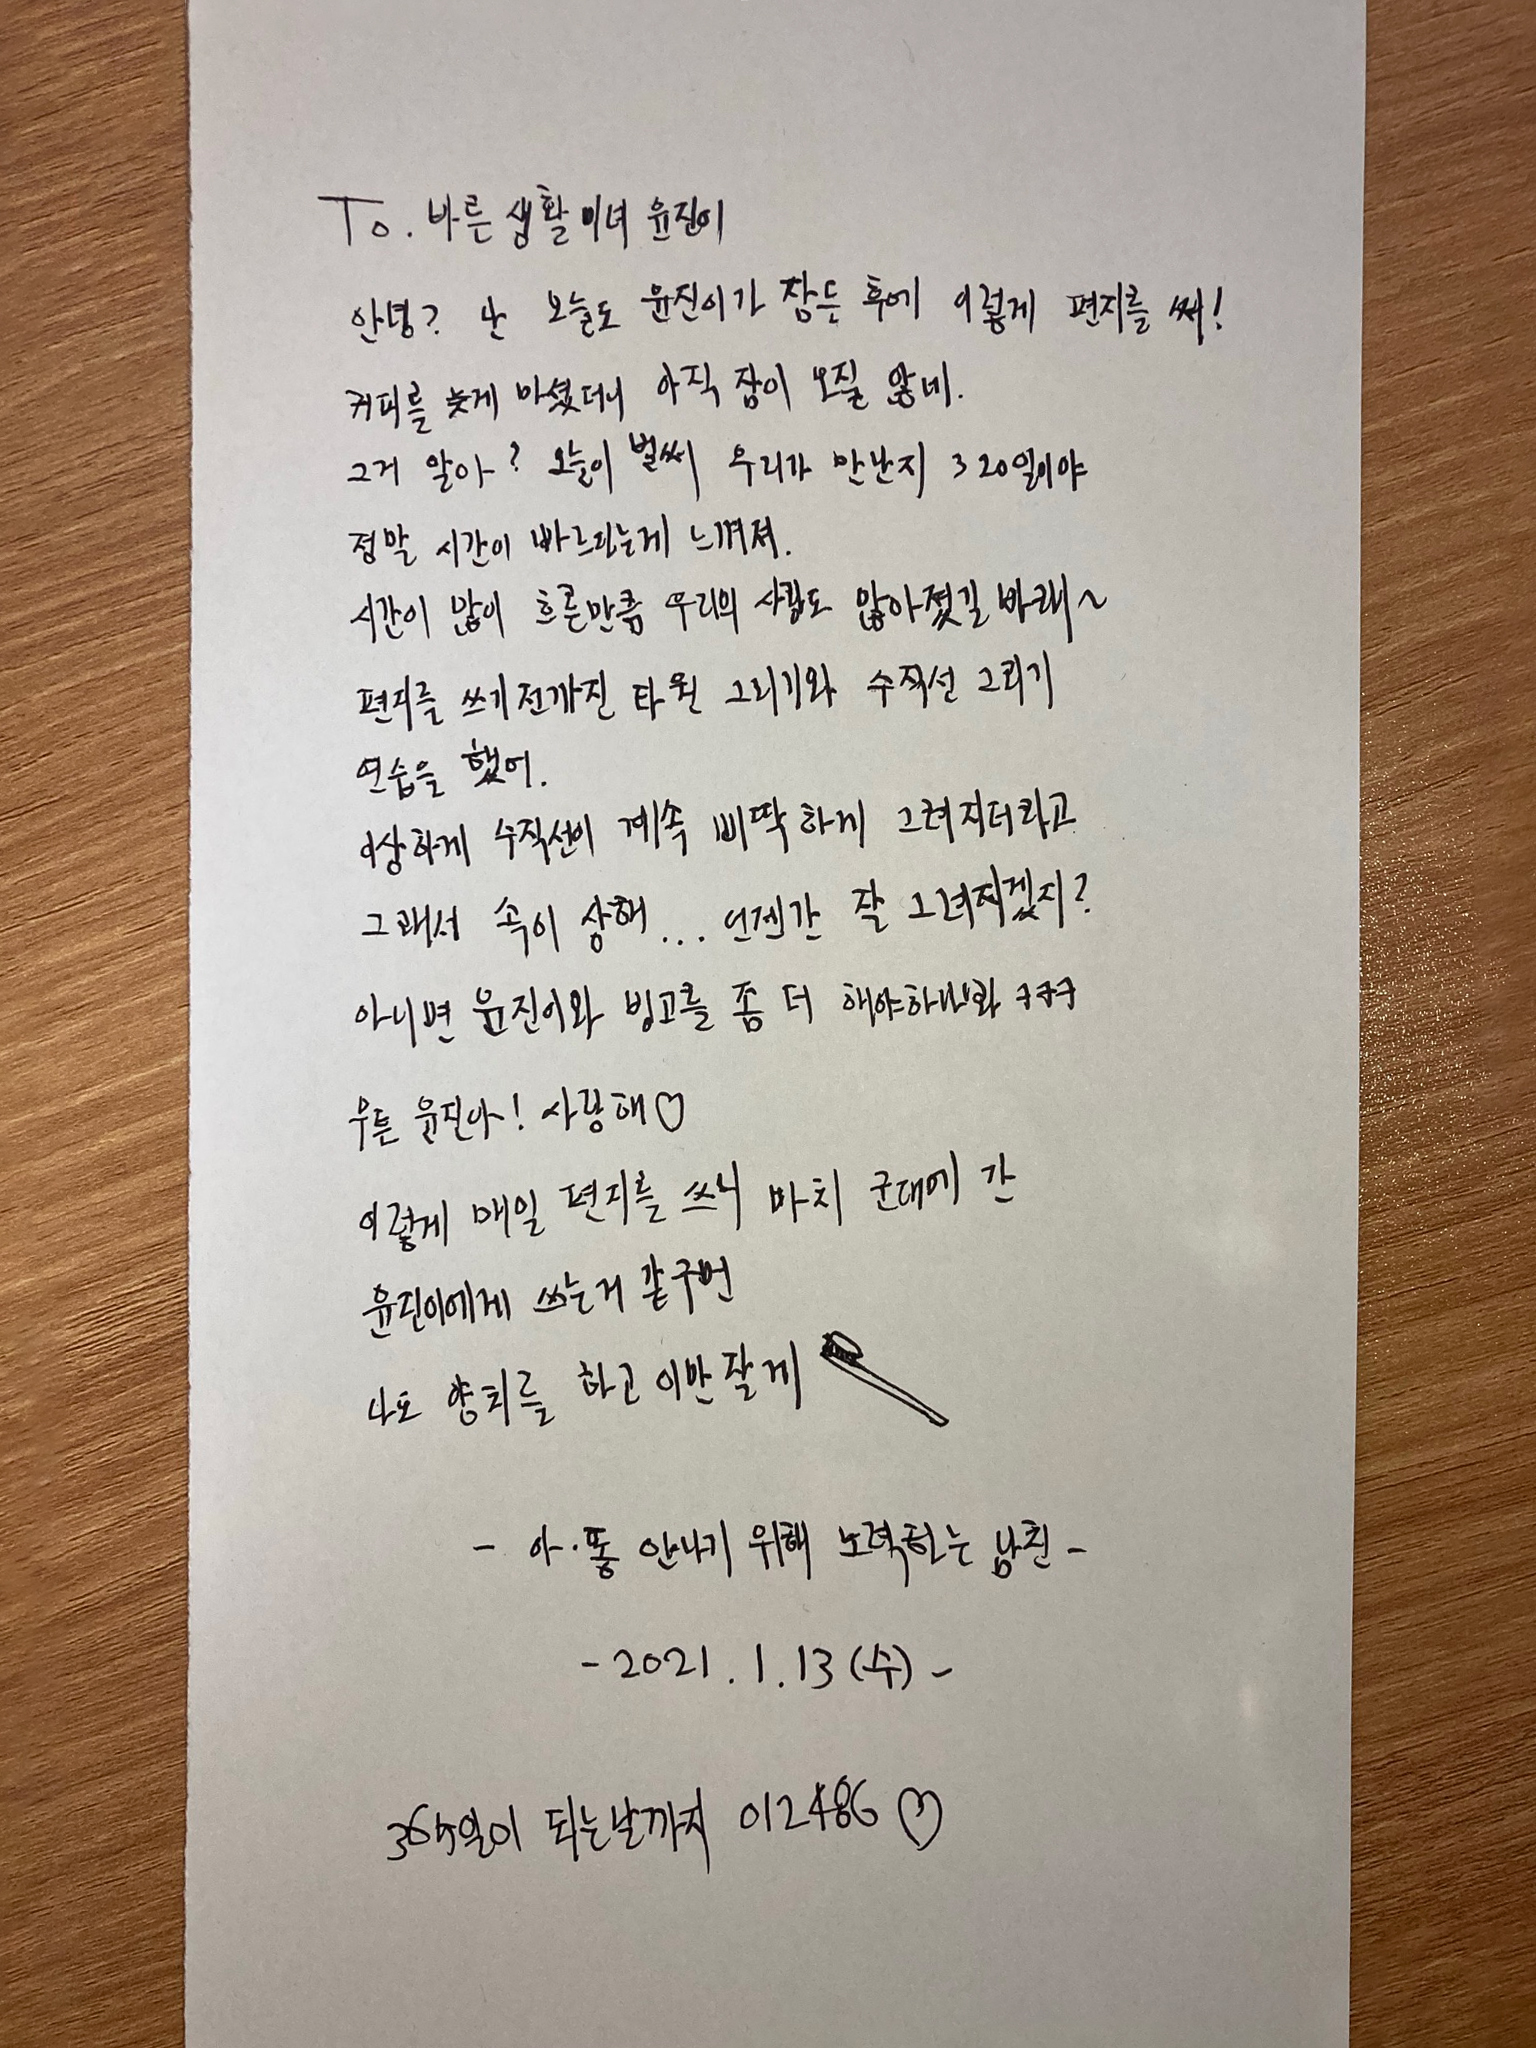 To. 바른생활 미녀 윤진이
안녕? 난 오늘도 윤진이가 잠든 후에 이렇게 편지를 써!
커피를 늦게 마셨더니 아직 잠이 오질 않네.
그거 알아? 오늘이 벌써 우리가 만난지 320일이야
정말 시간이 빠르다는게 느껴져.
시간이 많이 흐른만큼 우리의 사랑도 많아졌길 바래~
편지를 쓰기전까진 타원 그리기와 수직선 그리기
연습을 했어.
이상하게 수직선이 계속 삐딱하게 그려지더라고
그래서 속이 상해... 언젠간 잘 그려지겠지?
아니면 윤진이와 빙고를 좀 더 해야하나봐 ㅋㅋㅋ
무튼 윤진아! 사랑해♡
이렇게 매일 편지를 쓰니 마치 군대에 간
윤진이에게 쓰는거 같구먼
나도 양치를 하고 이만 잘게
- 아·똥 안나기 위해 노력하는 남친 -
- 2021. 1. 13 (수) -
365일이 되는날까지 012486 ♡